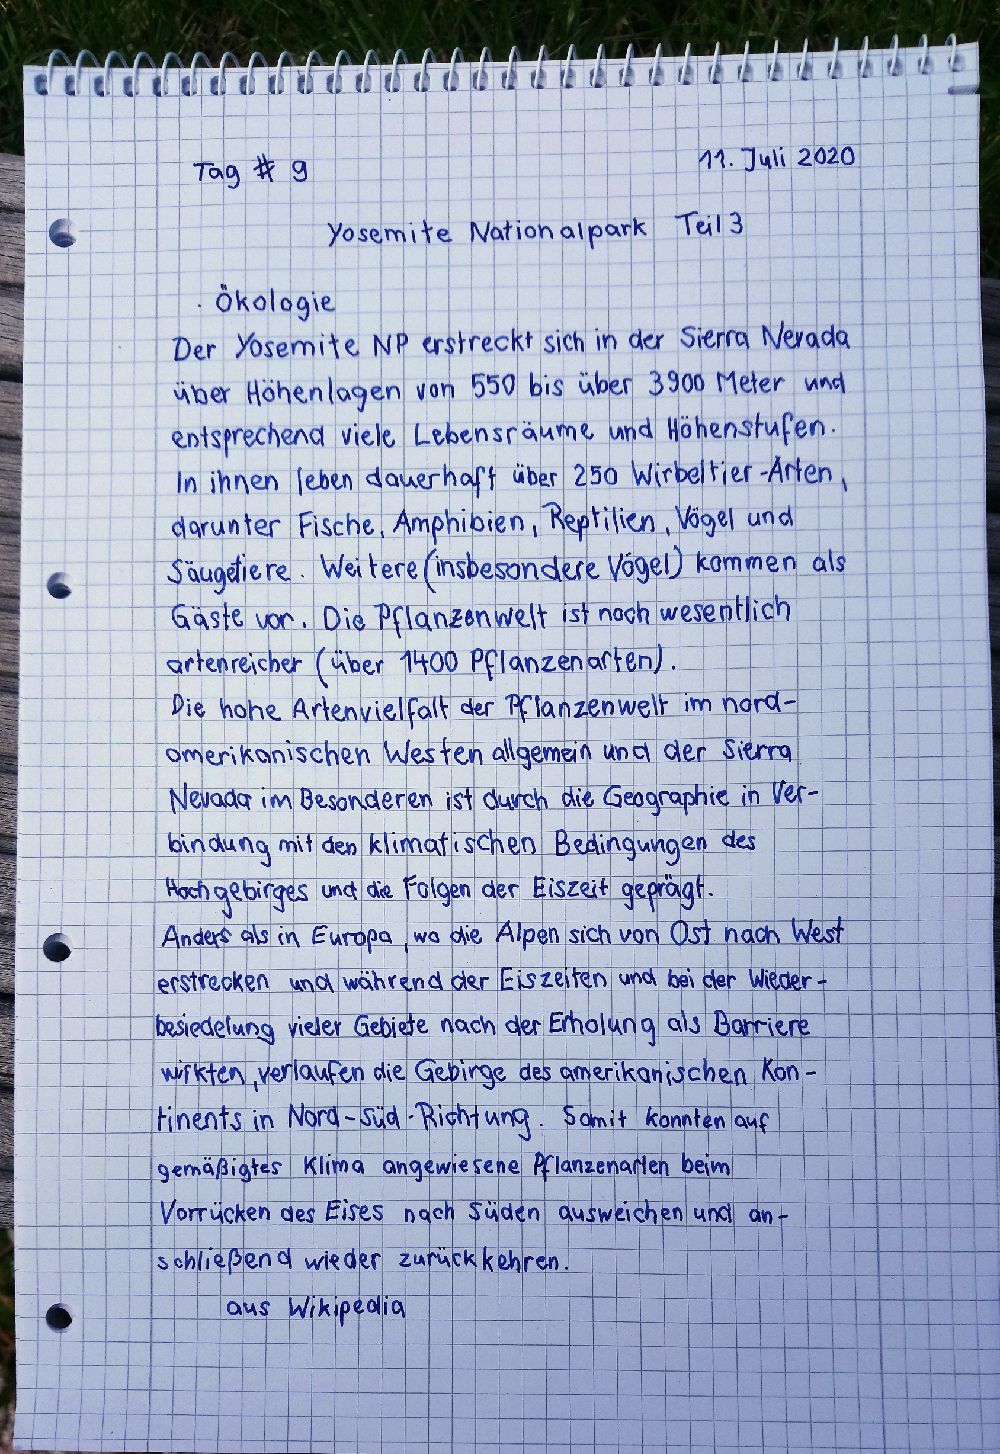 Tag # 9
11. Juli 2020
Yosemite Nationalpark Teil 3
. Ökologie
Der Yosemite NP erstreckt sich in der Sierra Nevada
über Höhenlagen von 550 bis über 3900 Meter und
entsprechend viele Lebensräume und Höhenstufen.
In ihnen leben dauerhaft über 250 Wirbeltier-Arten,
darunter Fische, Amphibien, Reptilien, Vögel und
Säugetiere. Weitere (insbesondere Vögel) kommen als
Gäste vor. Die Pflanzenwelt ist noch wesentlich
artenreicher (über 1400 Pflanzenarten).
Die hohe Artenvielfalt der Pflanzenwelt im nord-
amerikanischen Westen allgemein und der Sierra
Nevada im Besonderen ist durch die Geographie in Ver-
bindung mit den klimatischen Bedingungen des
Hochgebirges und die Folgen der Eiszeit geprägt.
Anders als in Europa, wo die Alpen sich von Ost nach West
erstrecken und während der Eiszeiten und bei der Wieder-
besiedelung vieler Gebiete nach der Erholung als Barriere
wirkten, verlaufen die Gebirge des amerikanischen Kon-
tinents in Nord-Süd-Richtung. Somit konnten auf
gemäßigtes Klima angewiesene Pflanzenarten beim
Vorrücken des Eises nach Süden ausweichen und an-
schließend wieder zurückkehren.
aus Wikipedia